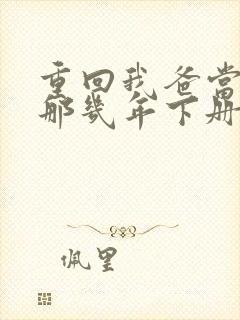 重回我爸当
那几年下册
佩里